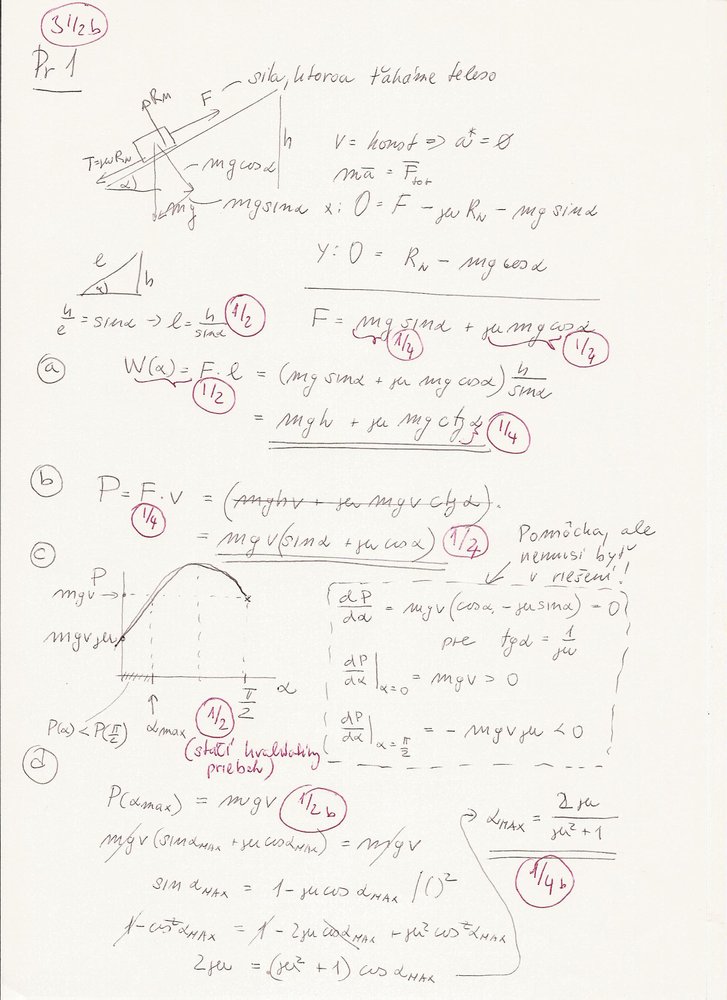 3 1/2 b
Pr 1
sila, ktorou ťaháme teleso
R_N
F
h
T=μR_N
α
mg cosα
mg
mg sinα
v = konst => a* = 0
ma̅ = F̅_tot
x: 0 = F - μR_N - mg sinα
Y: 0 = R_N - mg cosα
l
h
α
h/l = sinα → l = h/sinα 1/2
F = mg sinα + μ mg cosα
1/4 1/4
a
W(α) = F·l = (mg sinα + μ mg cosα) h/sinα
1/2
= mgh + μ mg ctg α 1/4
b
P = F·v = (mghv + μ mgv ctg α).
1/4
= mgv(sinα + μ cosα) 1/2
c
P
mgv
mgvμ
α
π/2
P(α) < P(π/2)
α_max
1/2
(stačí kvalitatívny
priebeh)
Pomôcka, ale
nemusí byť
v riešení!
dP/dα = mgv(cosα - μ sinα) = 0
pre tgα = 1/μ
dP/dα |α=0 = mgv > 0
dP/dα |α=π/2 = -mgvμ < 0
d
P(α_max) = mgv 1/2 b
mgv(sinα_MAX + μ cosα_MAX) = mgv
sin α_MAX = 1 - μ cos α_MAX /()²
1 - cos²α_MAX = 1 - 2μ cosα_MAX + μ² cos²α_MAX
2μ = (μ² + 1) cos α_MAX
→ α_MAX = 2μ/(μ² + 1)
1/4 b